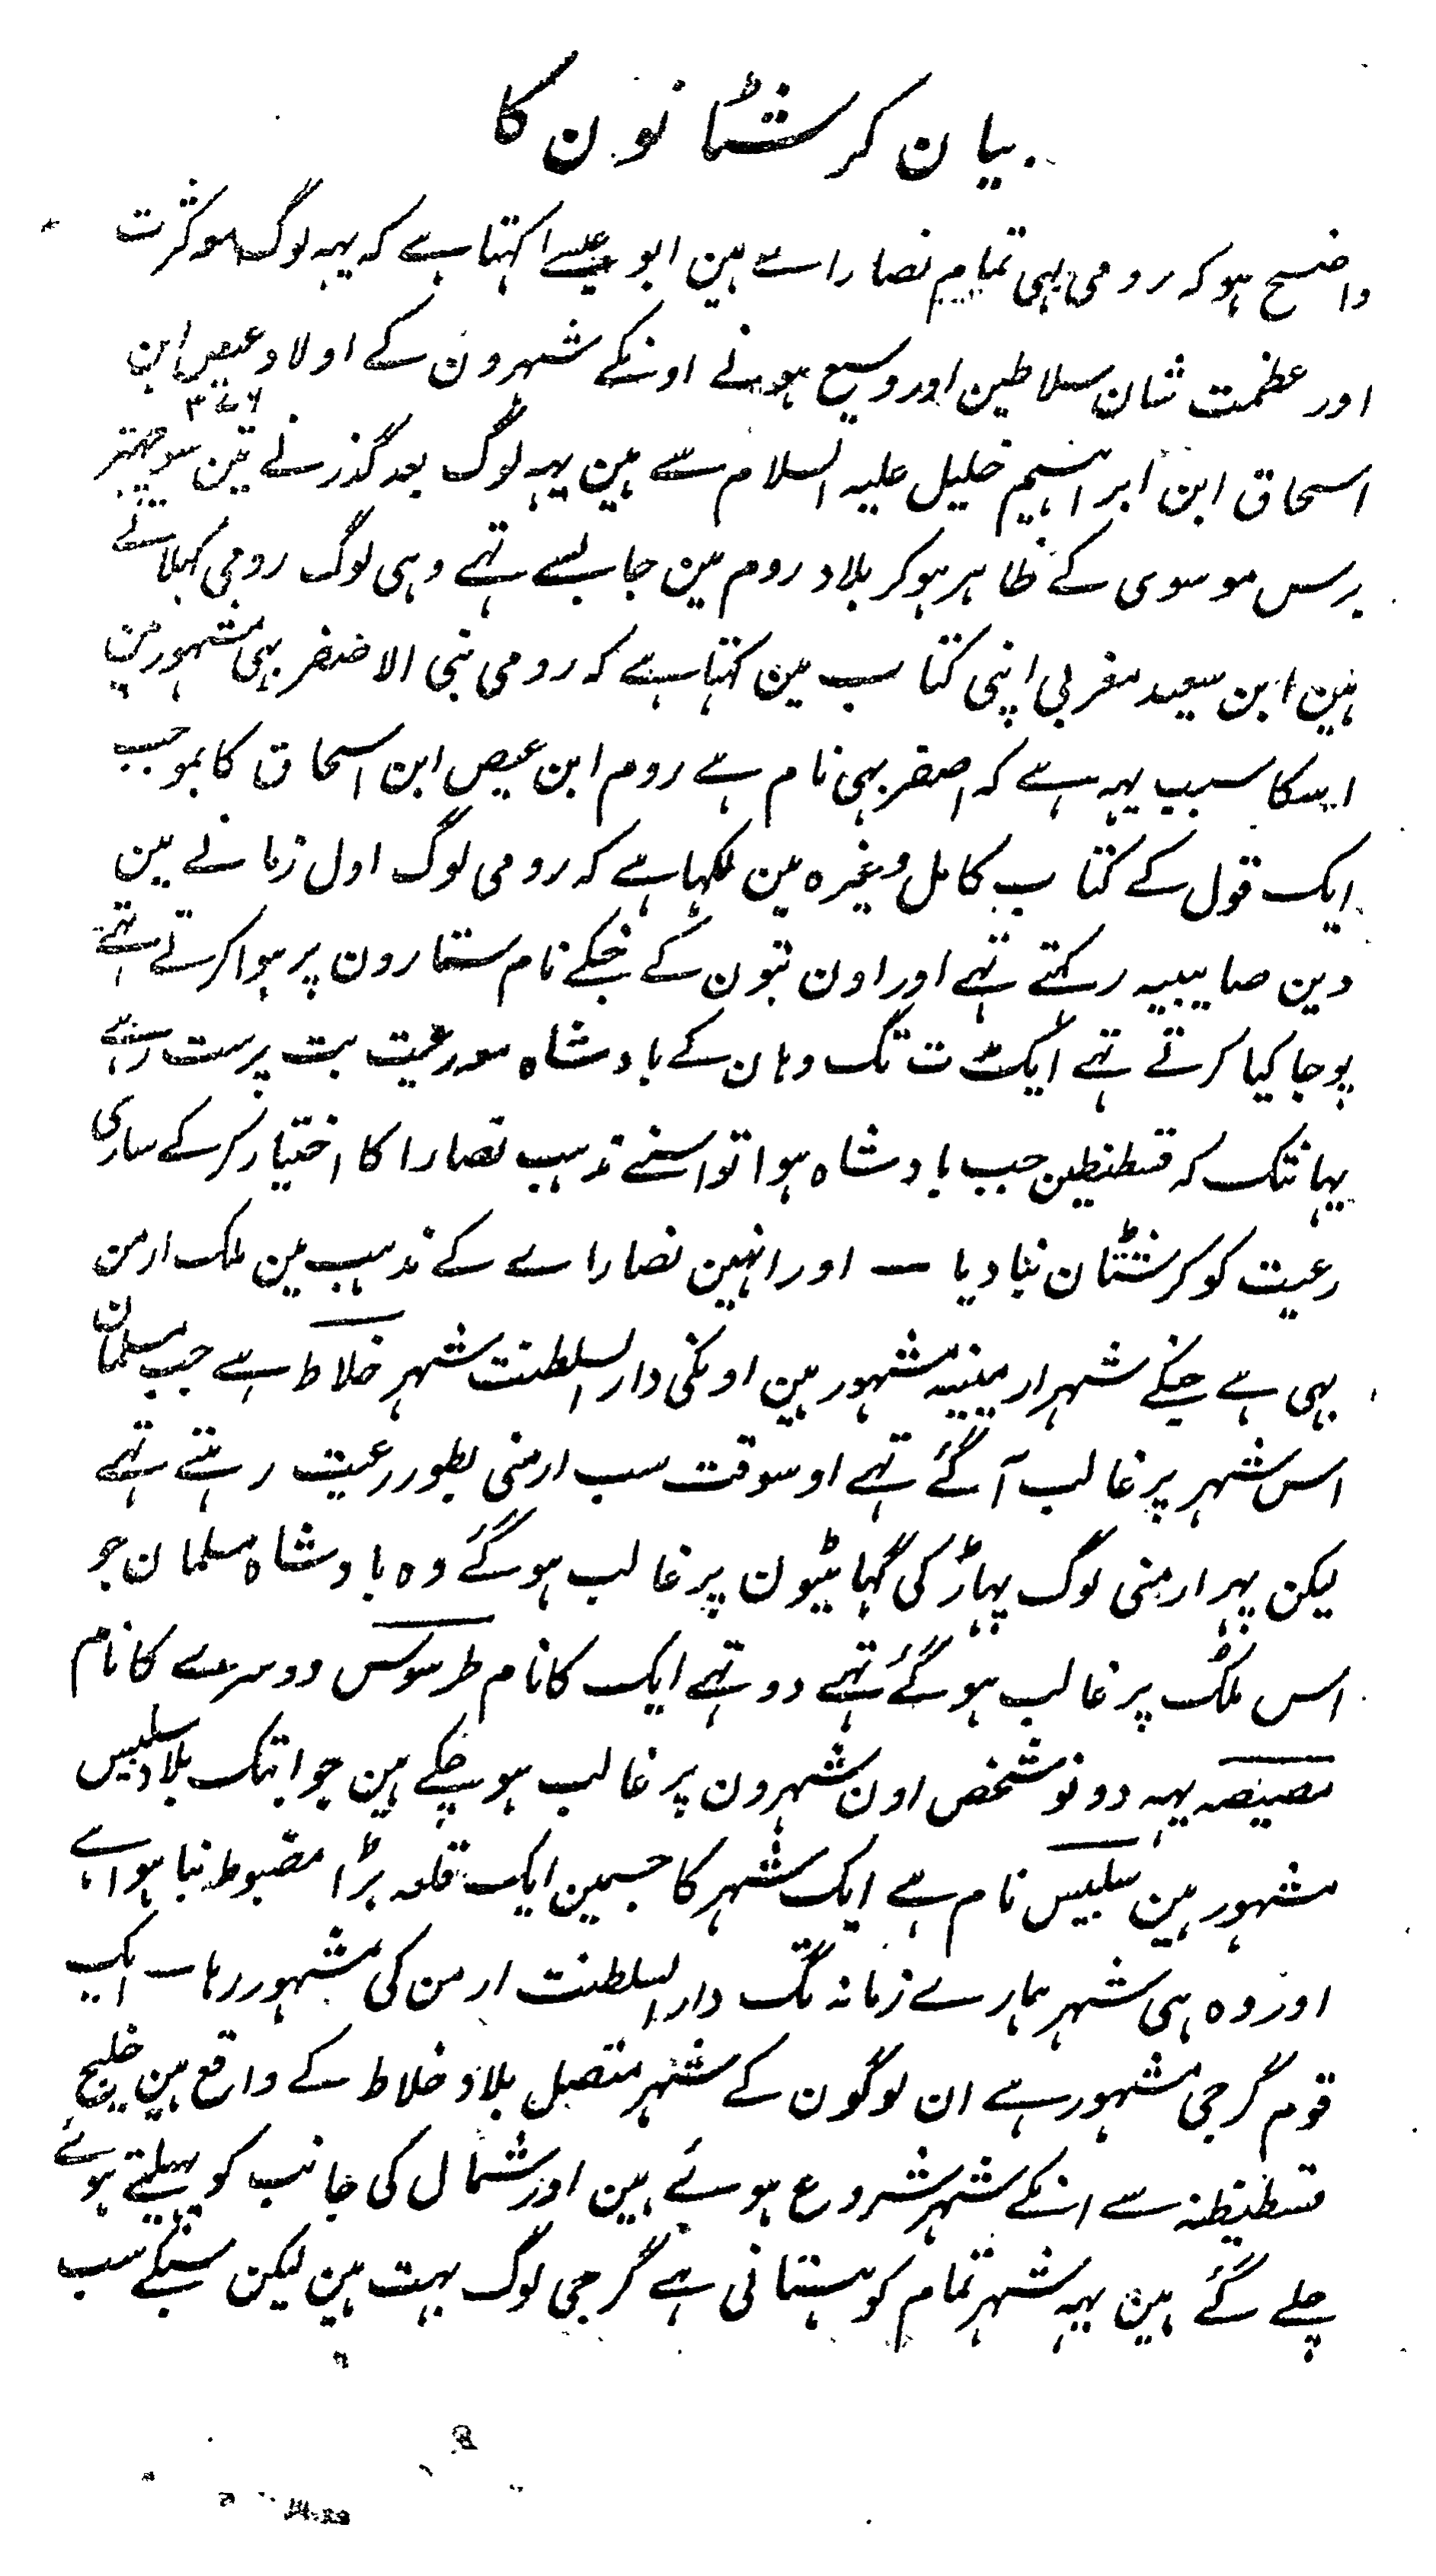 بیان کرشٹانون کا
واضح ہو کہ رومی بہی تمام نصارا سے ہین ابو عیسے اکہتا ہے کہ یہہ لوگ
اور عظمت شان سلاطین اور وسیع ہونے اونکے شہرون کے اولاد عیص ابن
۳۷۶
اسحاق ابن ابراہیم خلیل علیہ السلام سے ہین یہہ لوگ بعد گذرنے تین سو چہتر
برس موسوی کے ظاہر ہوکر بلاد روم مین جا بسے تہے وہی لوگ رومی کہلاتے
ہین ابن سعید مغربی اپنی کتاب مین کہتا ہے کہ رومی بنی الاصفر بہی مشہور ہین
اسکا سبب یہہ ہے کہ اصفر بہی نام ہے روم ابن عیص ابن اسحاق کا بموجب
ایک قول کے کتاب کامل وغیرہ مین لکہا ہے کہ رومی لوگ اول زمانے مین
دین صایبیہ رکہتے تہے اور اون بتون کے جنکے نام ستارون پر ہوا کرتے تہے
پوجا کیا کرتے تہے ایک مدت تک وہان کے بادشاہ معہ رعیت بت پرست رہے
یہانتک کہ قسطنطین جب بادشاہ ہوا تو اسنے مذہب نصارا کا اختیار کرکے ساری
رعیت کو کرشٹان بنا دیا — اور انہین نصارا ے کے مذہب مین ملک ارمن
بہی ہے جنکے شہر ارمینیہ مشہور ہین اونکی دار السلطنت شہر خلاط ہے جب مسلمان
اس شہر پر غالب آ گئے تہے اوسوقت سب ارمنی بطور رعیت رہتے تہے
لیکن پہر ارمنی لوگ پہاڑ کی گہاٹیون پر غالب ہوگئے وہ بادشاہ مسلمان جو
اس ملک پر غالب ہوگئے تہے دو تہے ایک کا نام طرسوس دوسرے کا نام
مصیصہ یہہ دونو شخص اون شہرون پر غالب ہو چکے ہین جو ابتک بلاد سلبیس
مشہور ہین سلبیس نام ہے ایک شہر کا جسمین ایک قلعہ بڑا مضبوط بنا ہوا ہے
اور وہ ہی شہر ہمارے زمانہ تک دار السلطنت ارمن کی مشہور رہا — ایک
قوم گرجی مشہور ہے ان لوگون کے شہر متصل بلاد خلاط کے واقع ہین خلیج
قسطنطنہ سے انکے شہر شروع ہوئے ہین اور شمال کی جانب کو پہیلتے ہوئے
چلے گئے ہین یہہ شہر تمام کوہستانی ہے گرجی لوگ بہت ہین لیکن سبکے سب